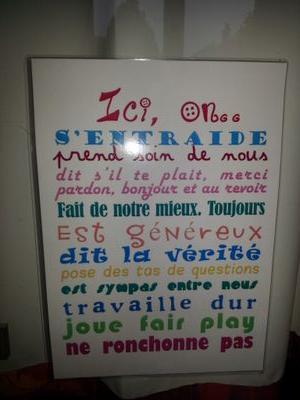 Ici, on..
S'ENTRAIDE
prend soin de nous
dit s'il te plait, merci
pardon, bonjour et au revoir
Fait de notre mieux. Toujours
Est généreux
dit la vérité
pose des tas de questions
est sympas entre nous
travaille dur
joue fair play
ne ronchonne pas